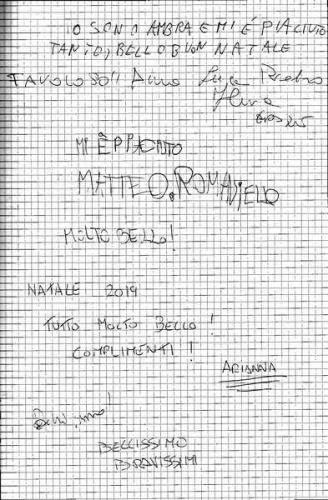 IO SONO AMBRA E MI È PIACIUTO
TANTO, BELLO BUON NATALE
FAVOLOSO!! Anno Luca
MI È PIACIUTO
MATTEO. ROMANIELLO
MOLTO BELLO!
NATALE 2019
TUTTO MOLTO BELLO!
COMPLIMENTI!
ARIANNA
BELLISSIMO
BRAVISSIMI